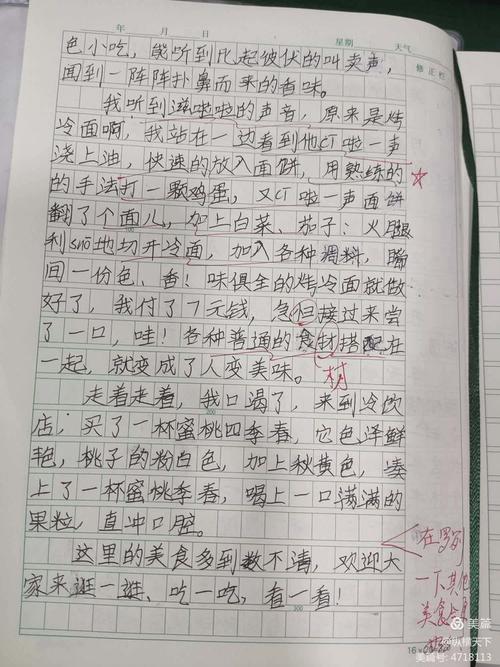 年 月 日 星期 天气
修正栏
色小吃，能听到此起彼伏的叫卖声，
闻到一阵阵扑鼻而来的香味。
我听到滋啦啦的声音，原来是烤
冷面啊，我站在一边看到他CT啦一声
浇上油，快速的放入面饼，用熟练的
的手法打一颗鸡蛋，又CT啦一声面饼
翻了个面儿，加上白菜、茄子、火腿
利suō地切开冷面，加入各种调料，瞬
间一份色、香！味俱全的烤冷面就做
好了，我付了7元钱，急接过来尝
了一口，哇！各种普通的食材搭配在
一起，就变成了人变美味。
材
走着走着，我口渴了，来到冷饮
店，买了一杯蜜桃四季春，它色泽鲜
艳，桃子的粉白色，加上秋黄色，凑
上了一杯蜜桃季春，喝上一口满满的
果粒，直冲口腔。
这里的美食多到数不清，欢迎大
家来逛一逛、吃一吃，看一看！
在写
一下其他
美食
美篇
纵横天下
美篇号: 4718113